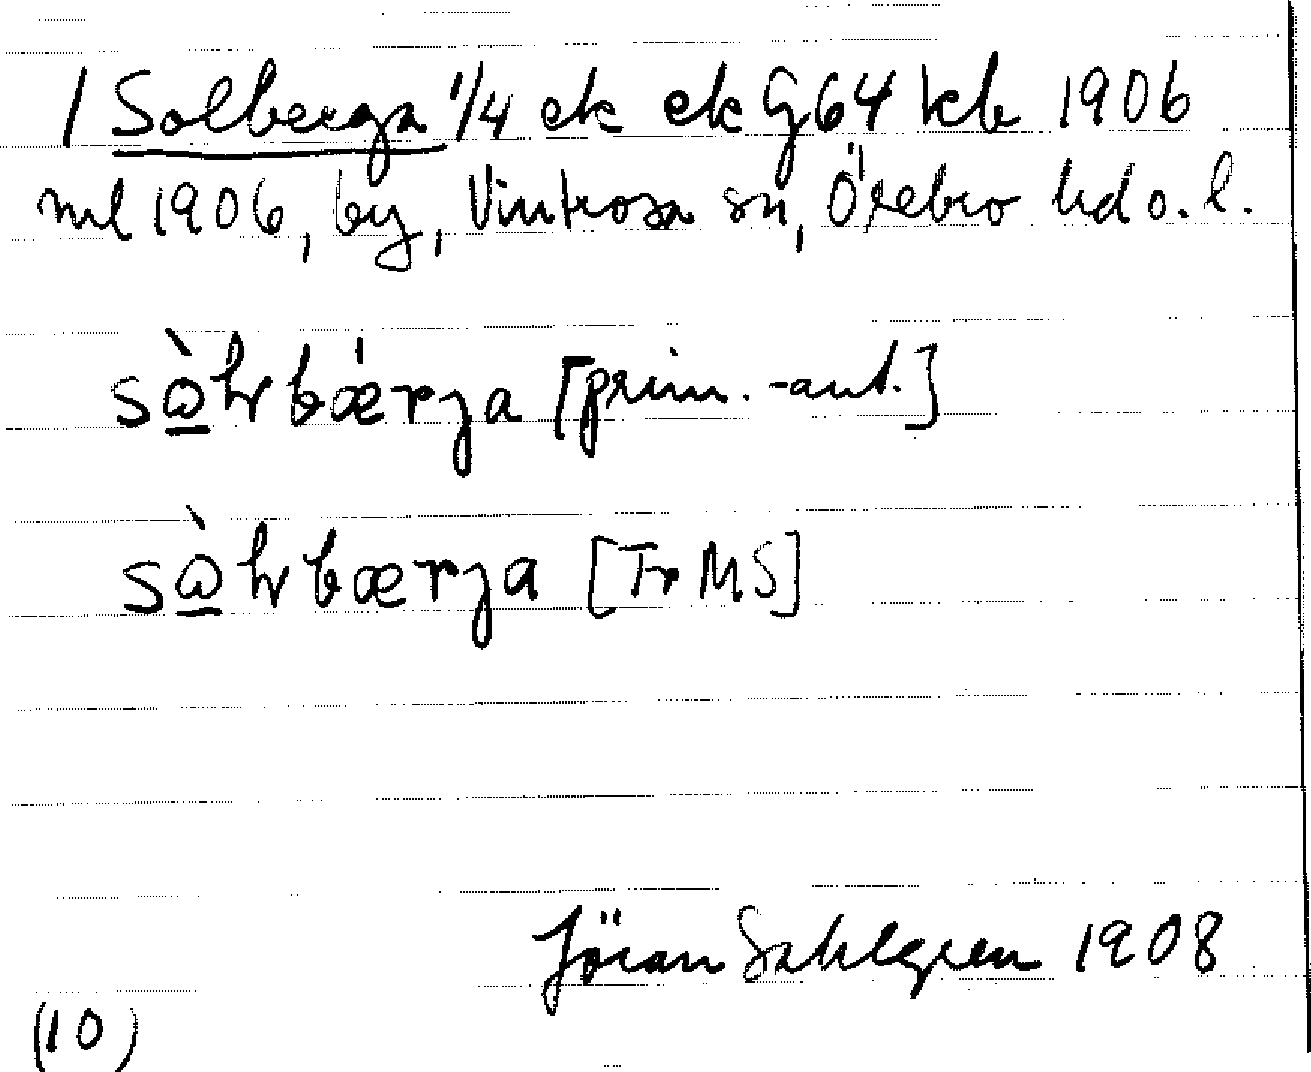 1 Solberga 1/4 ek ek G64 kb 1906
ml 1906, by, Vintrosa sn, Örebro hd o. l.
[prim. -ant.]
[Fr MS]
Jöran Sahlgren 1908
(10)